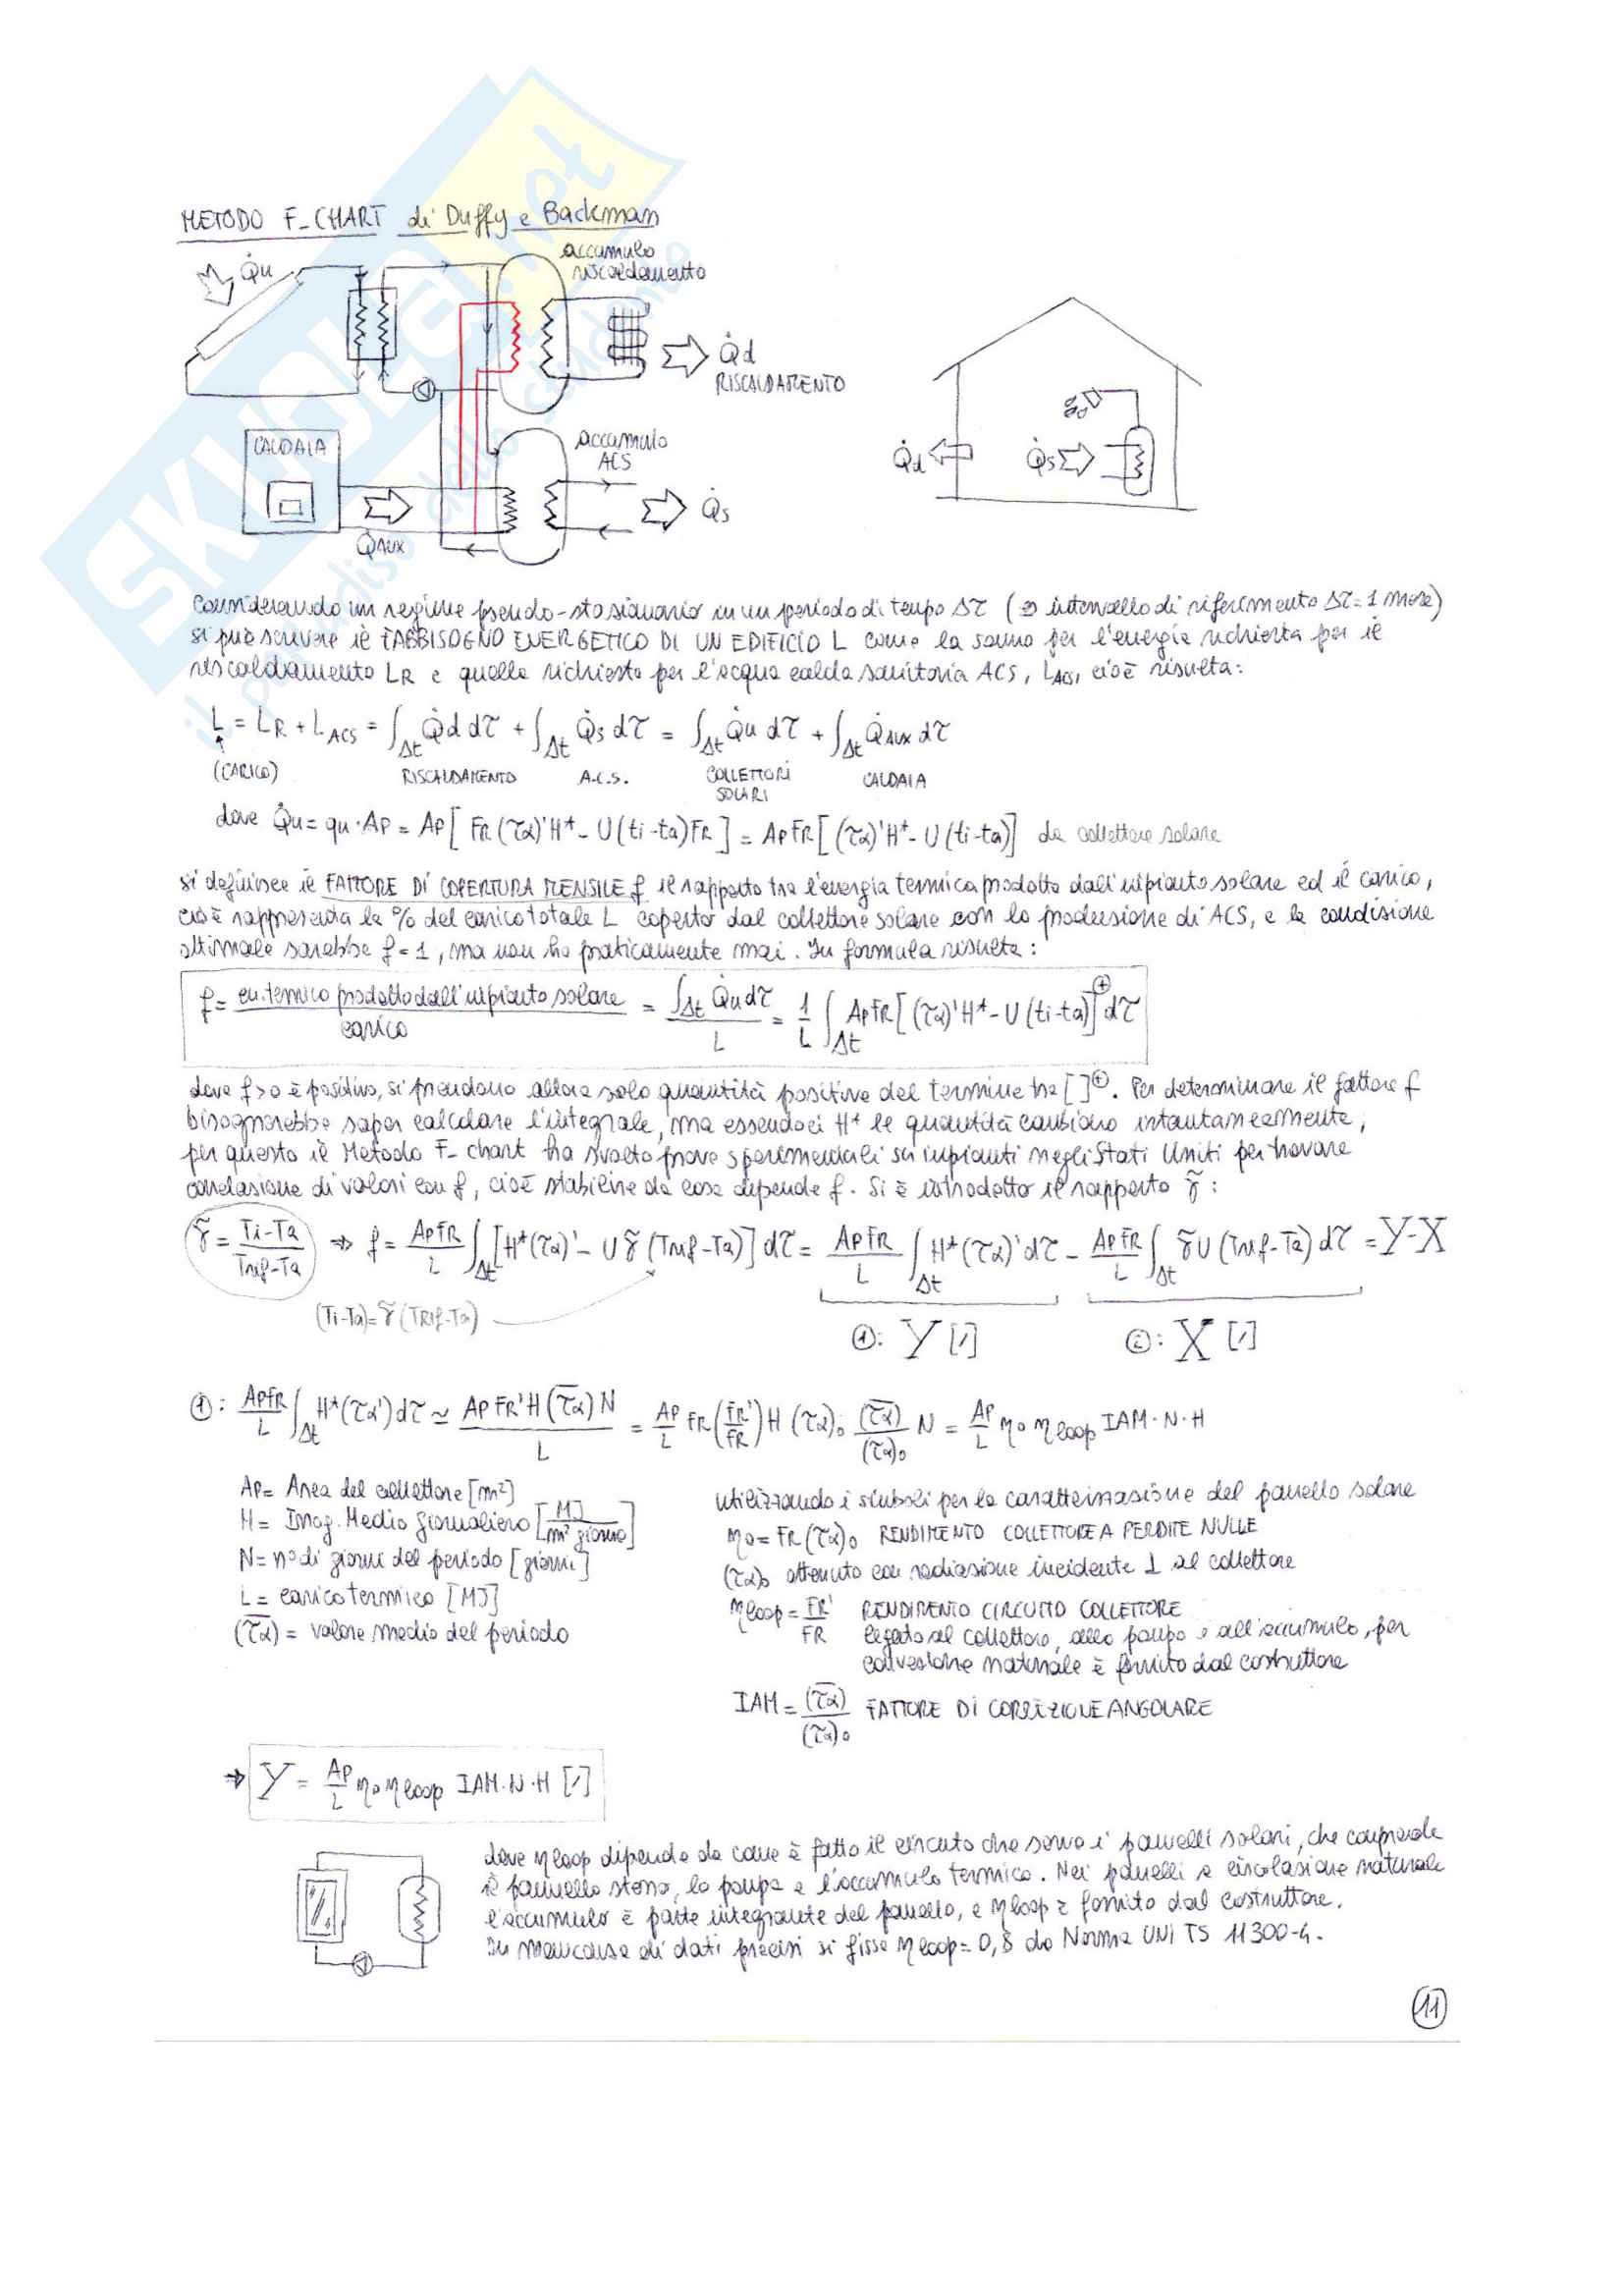 METODO F-CHART di Duffy e Backman
Q̇u
accumulo
riscaldamento
Q̇d
RISCALDAMENTO
CALDAIA
Q̇AUX
accumulo
ACS
Q̇s
Q̇d
Q̇s
Considerando un regime pseudo-stazionario in un periodo di tempo Δτ ( intervallo di riferimento Δτ=1 mese)
si può scrivere il FABBISOGNO ENERGETICO DI UN EDIFICIO L come la somma per l'energia richiesta per il
riscaldamento LR e quella richiesta per l'acqua calda sanitaria ACS, LACS, cioè risulta:
L = LR + LACS = ∫Δt Q̇d dτ + ∫Δt Q̇s dτ = ∫Δt Q̇u dτ + ∫Δt Q̇AUX dτ
(CARICO) RISCALDAMENTO A.C.S. COLLETTORI SOLARI CALDAIA
dove Q̇u = qu·Ap = Ap[FR(τα)'H* - U(ti-ta)FR] = ApFR[(τα)'H* - U(ti-ta)] da collettore solare
si definisce il FATTORE DI COPERTURA MENSILE f il rapporto tra l'energia termica prodotta dall'impianto solare ed il carico,
cioè rappresenta la % del carico totale L coperto dal collettore solare con la produzione di ACS, e la condizione
ottimale sarebbe f=1, ma non ho praticamente mai. In formula risulta:
f = en. termica prodotta dall'impianto solare / carico = ∫Δt Q̇u dτ / L = 1/L ∫Δt ApFR[(τα)'H* - U(ti-ta)]⊕ dτ
dove f>0 è positivo, si prendono allora solo quantità positive del termine tra [ ]⊕. Per determinare il fattore f
bisognerebbe saper calcolare l'integrale, ma essendoci H* le quantità cambiano istantaneamente,
per questo il Metodo F-chart ha svolto prove sperimentali su impianti negli Stati Uniti per trovare
correlazione di valori con f, cioè stabilire da cosa dipende f. Si è introdotto il rapporto γ̃:
γ̃ = Ti-Ta / Trif-Ta ⇒ f = ApFR/L ∫Δt [H*(τα)' - Uγ̃(Trif-Ta)] dτ = ApFR/L ∫Δt H*(τα)' dτ - ApFR/L ∫Δt γ̃U(Trif-Ta) dτ = Y-X
(Ti-Ta) = γ̃(TRif-Ta)
①: Y [/] ②: X [/]
①: ApFR/L ∫Δt H*(τα') dτ ≃ Ap FR' H (τα)̅ N / L = Ap/L FR (FR'/FR) H (τα)₀ (τα)̅/(τα)₀ N = Ap/L η₀ ηloop IAM·N·H
Ap = Area del collettore [m²]
H = Irrag. Medio giornaliero [MJ/m² giorno]
N = n° di giorni del periodo [giorni]
L = carico termico [MJ]
(τα)̅ = valore medio del periodo
utilizzando i simboli per la caratterizzazione del pannello solare
η₀ = FR(τα)₀ RENDIMENTO COLLETTORE A PERDITE NULLE
(τα)₀ ottenuto con radiazione incidente ⊥ al collettore
ηloop = FR'/FR RENDIMENTO CIRCUITO COLLETTORE
legato al collettore, alla pompa e all'accumulo, per
convezione naturale è fornito dal costruttore
IAM = (τα)̅/(τα)₀ FATTORE DI CORREZIONE ANGOLARE
⇒ Y = Ap/L η₀ ηloop IAM·N·H [/]
dove ηloop dipende da come è fatto il circuito che serve i pannelli solari, che comprende
il pannello stesso, la pompa e l'accumulo termico. Nei pannelli a circolazione naturale
l'accumulo è parte integrante del pannello, e ηloop è fornito dal costruttore.
In mancanza di dati precisi si fissa ηloop = 0,8 da Norma UNI TS 11300-4.
11
SKUOLA.net
il paradiso dello studente